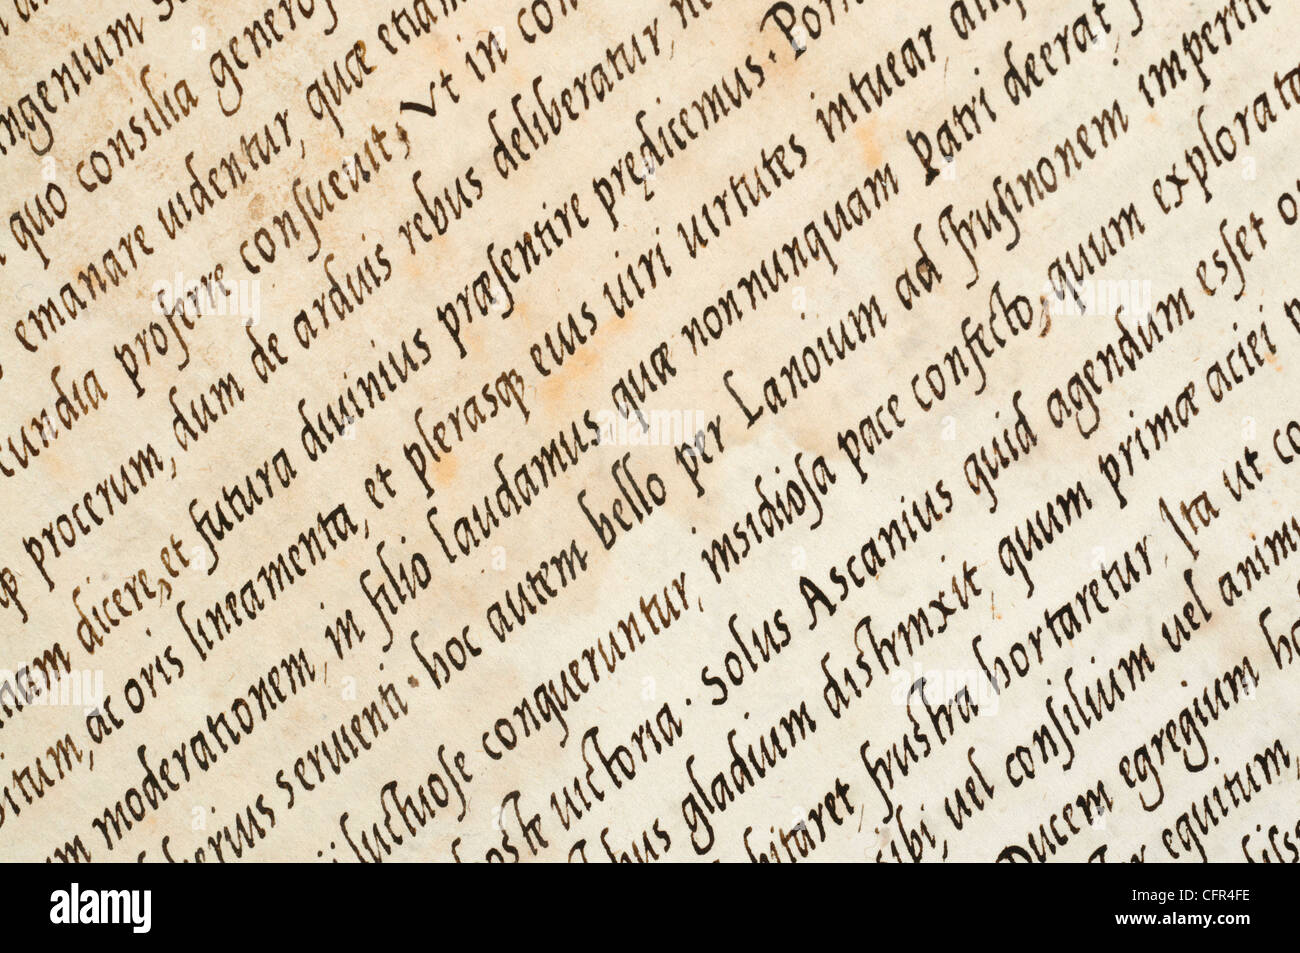 ingenium
quo consilia generos
emanare uidentur, quæ etiam
cundia proferre consueuit, Vt in con
q̃ procerum, dum de arduis rebus deliberatur, ne
nam dicere, et futura diuinius præsentire prędicemus. Porr
situm, ac oris lineamenta, et plerasq̃ eius uiri uirtutes intuear, aliq
um moderationem, in filio laudamus, quæ nonnunquam patri deerat, f
berius seruienti. hoc autem bello per Lanoium ad frusinonem imperite
ii luctuose conqueruntur, insidiosa pace confecto, quum explorata
hoste uictoria. Solus Ascanius quid agendum esset
bus gladium distrinxit, quum primæ aciei
bitaret, frustra hortaretur, Ita ut co
sibi, uel consilium uel anim
Ducem egregium ho
equitum,
alamy
Image ID: CFR4FE
www.alamy.com